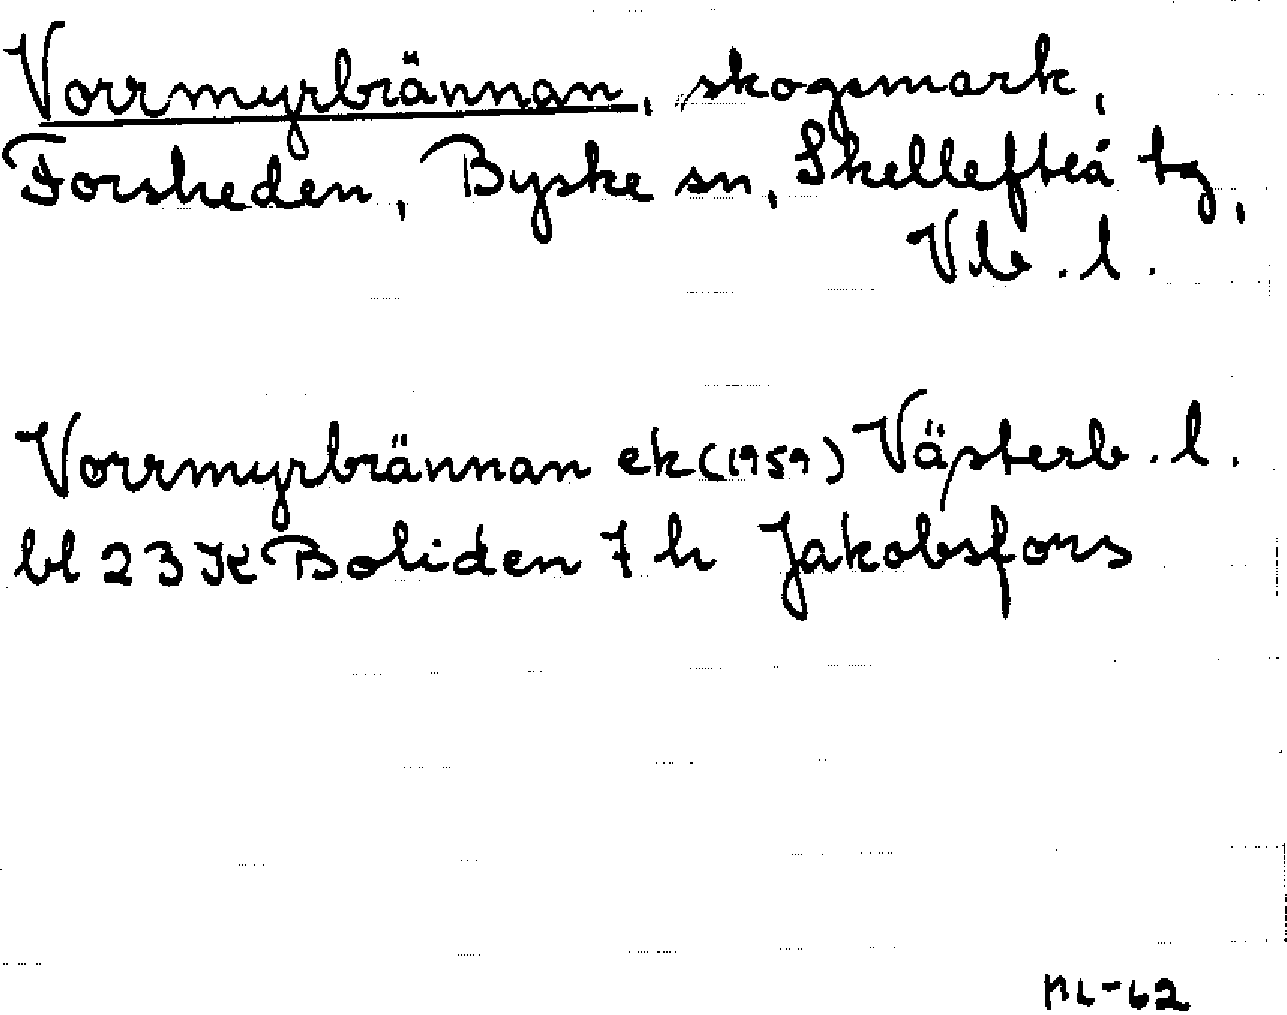 Vorrmyrbrännan, skogsmark,
Forsheden, Byske sn, Skellefteå tg,
Vb. l.
Vorrmyrbrännan ek (1959) Västerb. l.
bl 23 K Boliden 7 h Jakobsfors
ML-62